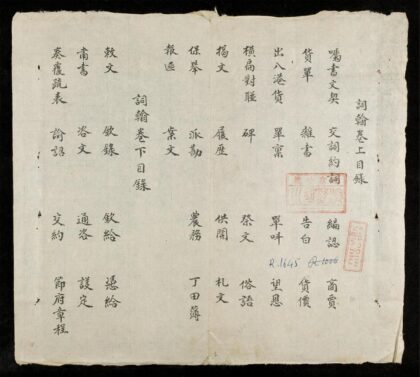 詞翰卷上目錄
囑書文契 交詞約詞 編認 商賈
貨單 雜書 告白 貨價
出入港貨 單稟 單呌 望恩
橫扁對聯 碑 祭文 俗語
揭文 履歷 供開 札文
保舉 派勤 農務 丁田簿
報區 案文
詞翰卷下目錄
敕文 欽錄 欽給 憑給
肅書 咨文 通咨 議定
奏覆疏表 諭詔 交約 節府章程
R.1645